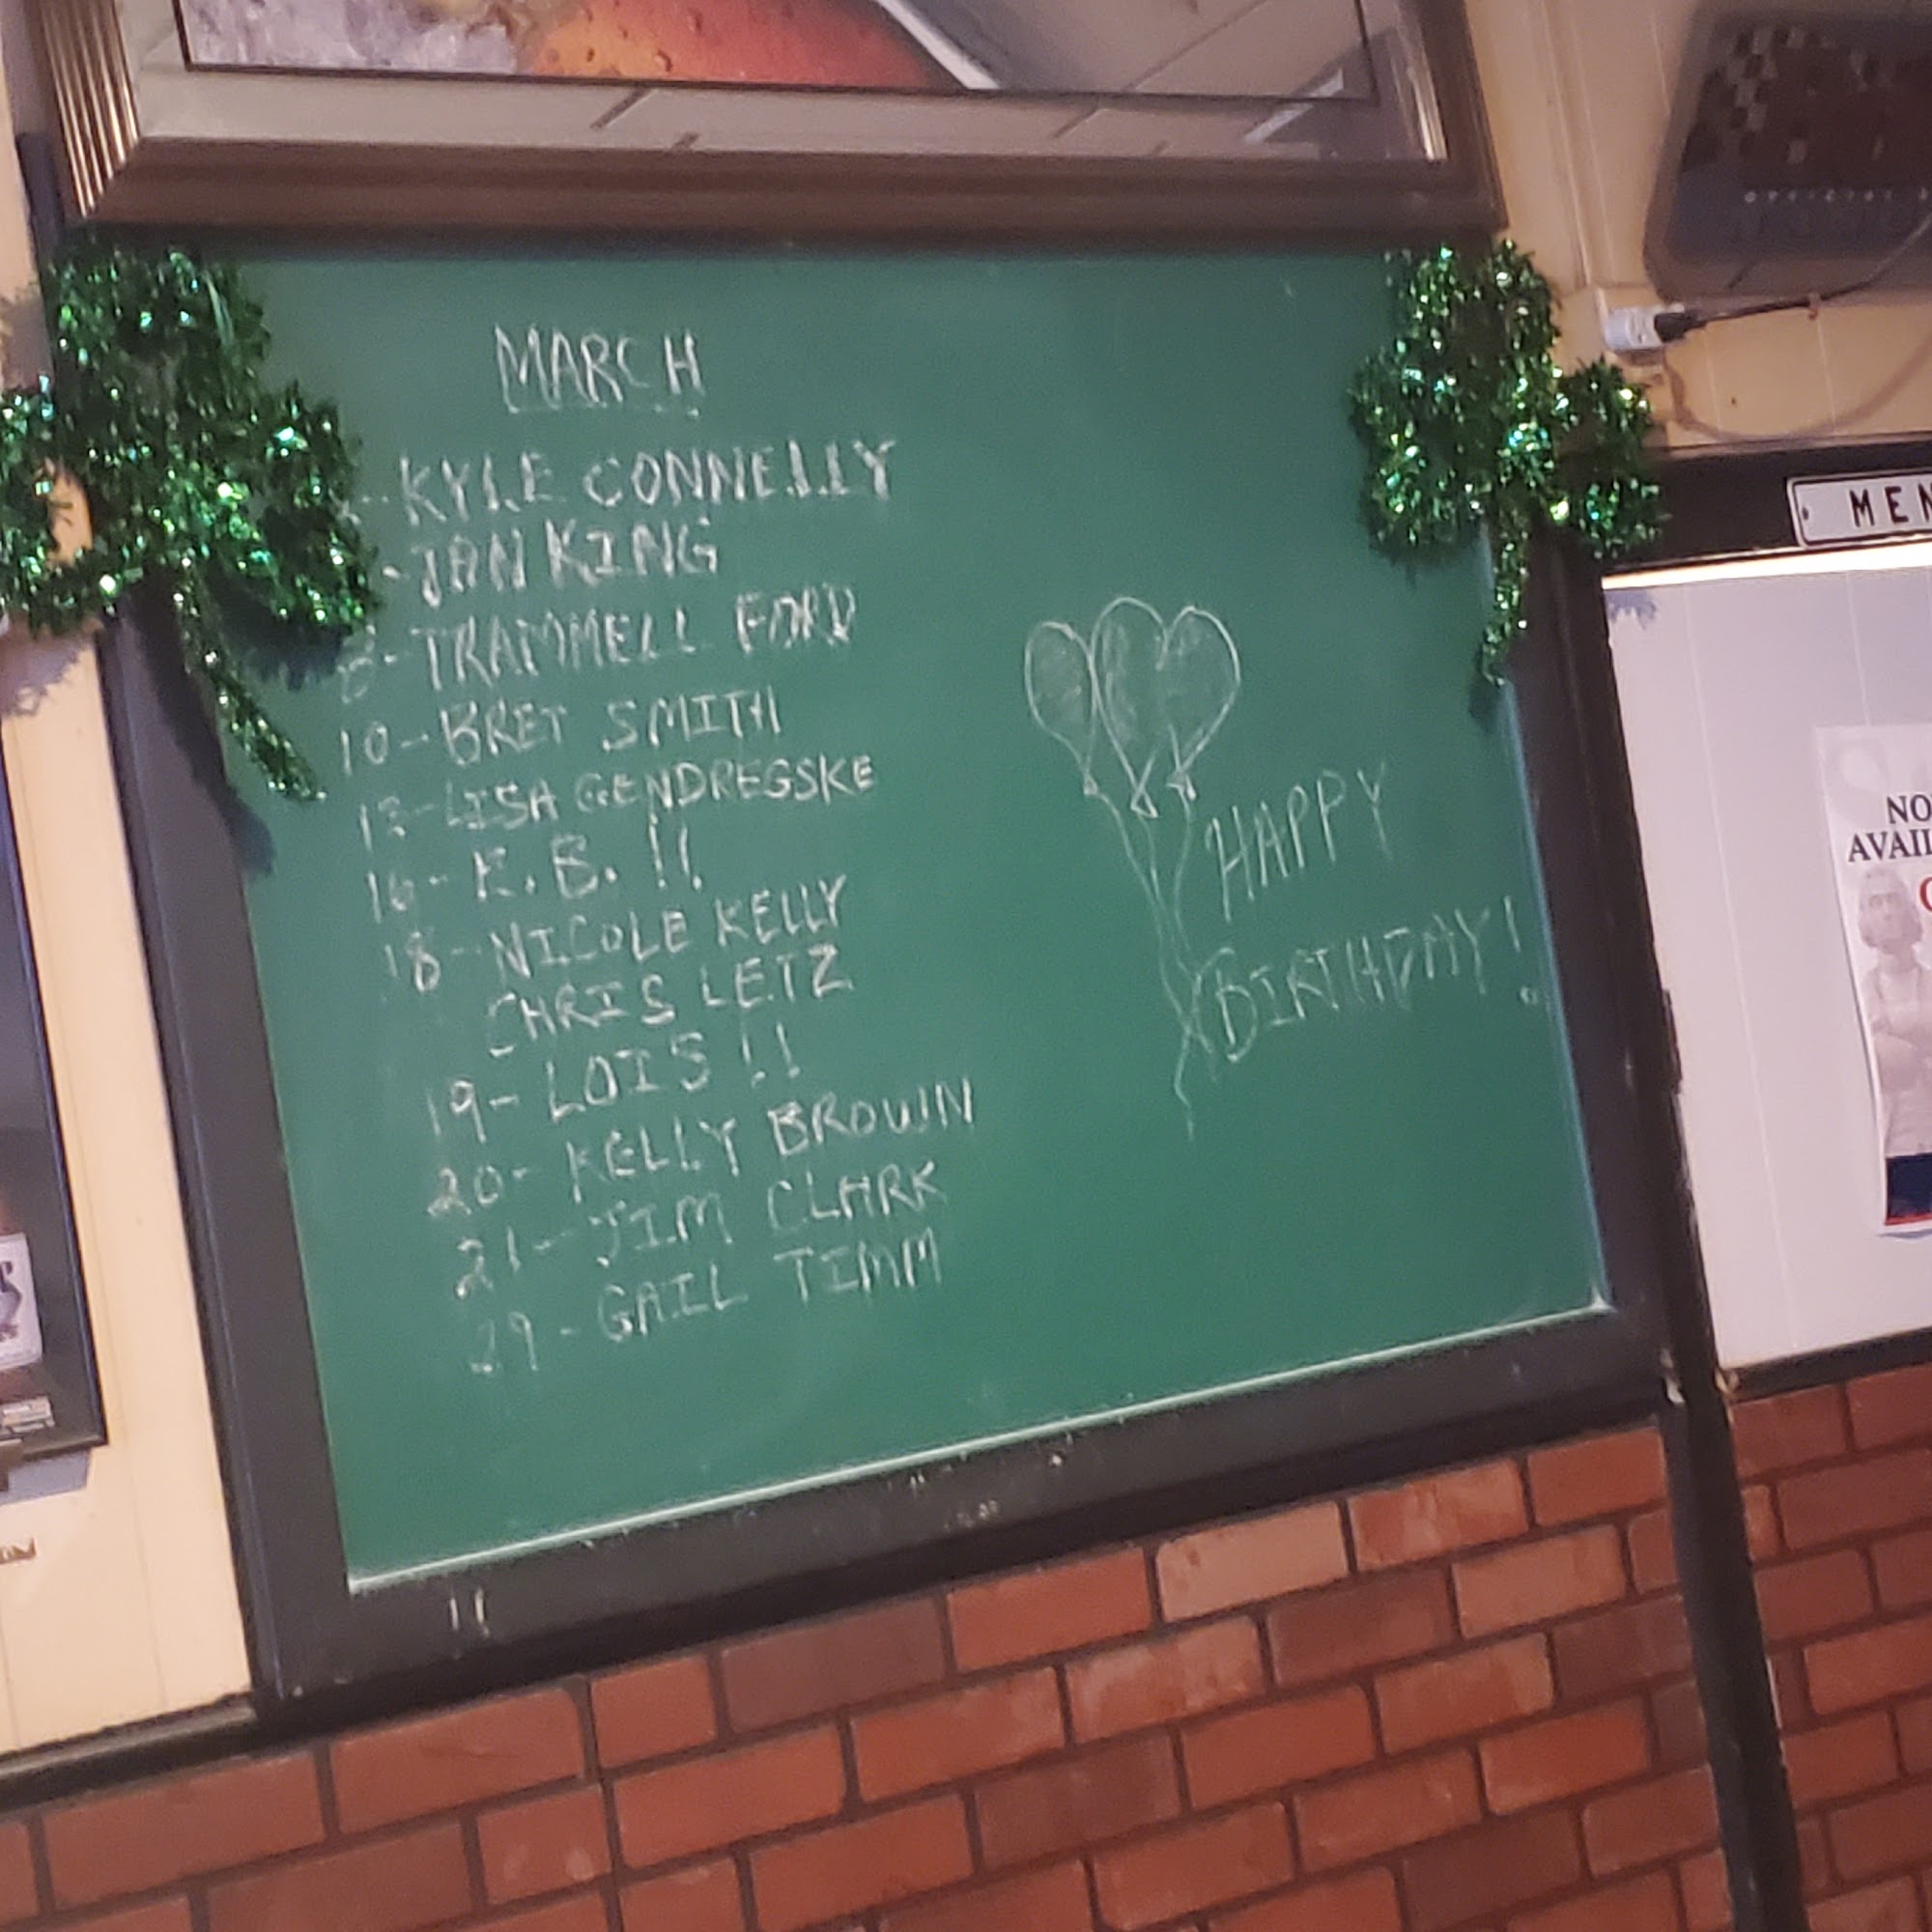 MARCH
- KYLE CONNELLY
- JAN KING
8- TRAMMELL FORD
10- BRET SMITH
13- LISA GENDREGSKE
16- K.B. !!
18- NICOLE KELLY
CHRIS LETZ
19- LOIS !!
20- KELLY BROWN
21- JIM CLARK
29- GAIL TIMM
HAPPY
BIRTHDAY!
MEN
NO
AVAIL